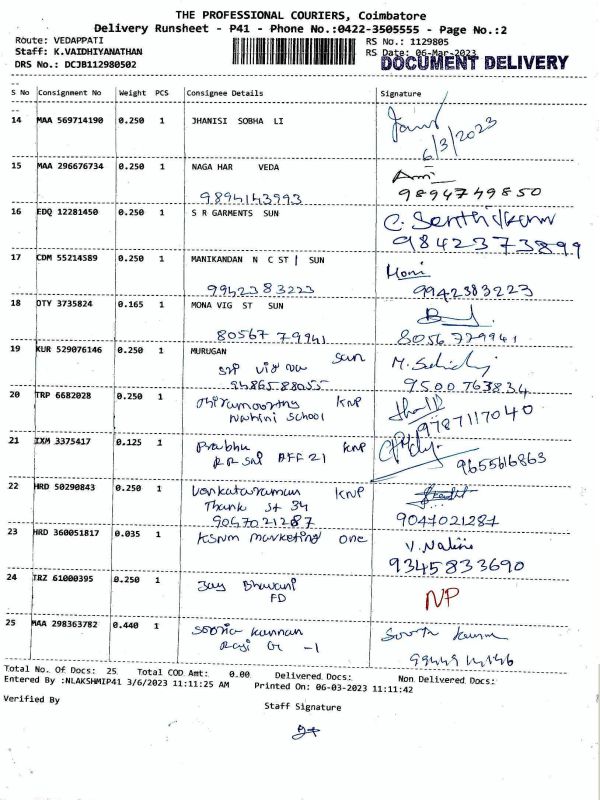 THE PROFESSIONAL COURIERS, Coimbatore
Delivery Runsheet - P41 - Phone No.:0422-3505555 - Page No.:2
Route: VEDAPPATI
RS No.: 1129805
Staff: K.VAIDHIYANATHAN
RS Date: 06-Mar-2023
DRS No.: DCJB112980502
DOCUMENT DELIVERY
S No Consignment No Weight PCS Consignee Details Signature
14 MAA 569714190 0.250 1 JHANISI SOBHA LI
6/3/2023
15 MAA 296676734 0.250 1 NAGA HAR VEDA
9894143993 9894749850
16 EDQ 12281450 0.250 1 S R GARMENTS SUN C. Senthilkumar
9842373899
17 CDM 55214589 0.250 1 MANIKANDAN N C ST | SUN Moni
9942383223 9942383223
18 OTY 3735824 0.165 1 MONA VIG ST SUN
80567 79941 8056779941
19 KUR 529076146 0.250 1 MURUGAN sun
9486588055 9500763834
20 TRP 6682028 0.250 1 Thiramoorthy KNP
Nahini School 9787117040
21 IXM 3375417 0.125 1 Prabhu KNP
9655616863
22 HRD 50290843 0.250 1 Venkataraman KNP
Thank St 34
9047021287 9047021287
23 HRD 360051817 0.035 1 KSNM marketing one V. Nalini
9345833690
24 TRZ 61000395 0.250 1 Jay Bhavani NP
FD
25 MAA 298363782 0.440 1 Sooria Kannan
-1
Total No. Of Docs: 25 Total COD Amt: 0.00 Delivered Docs: Non Delivered Docs:
Entered By :NLAKSHMIP41 3/6/2023 11:11:25 AM Printed On: 06-03-2023 11:11:42
Verified By
Staff Signature